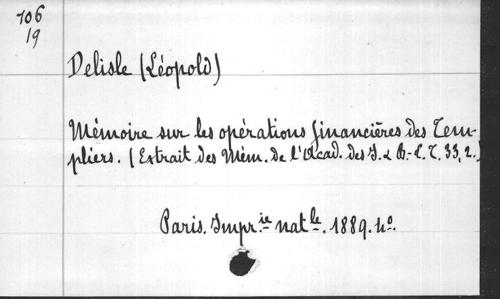 106
19
Delisle (Léopold)
Mémoire sur les opérations financières des Tem-
pliers. (Extrait des Mém. de l'Acad. des I. & B.-L. T. 33, 2.)
Paris. Impr.ie natle. 1889. 4o.